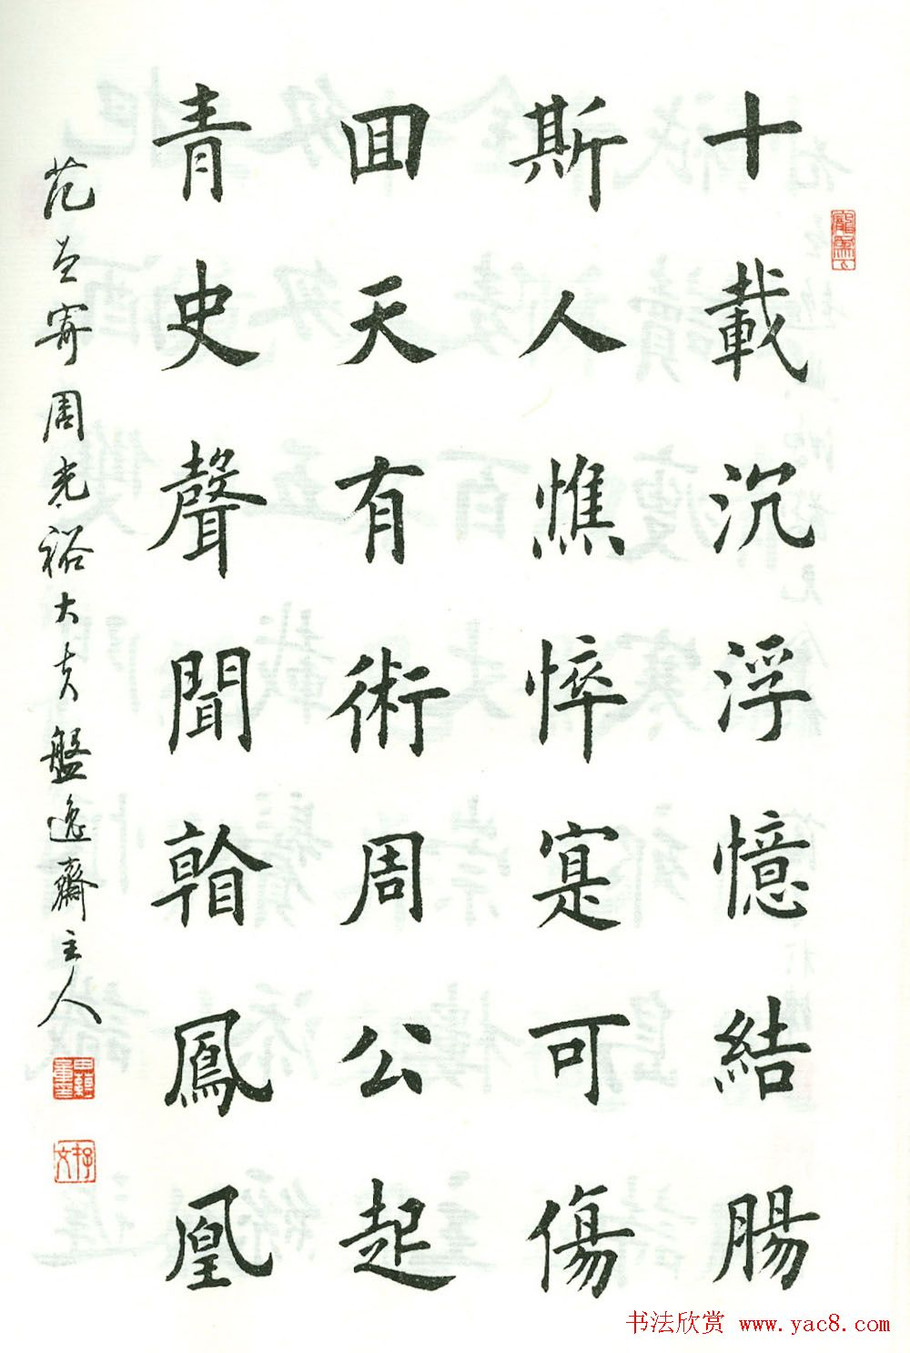 十載沉浮憶結腸
斯人憔悴寔可傷
囬天有術周公起
青史聲聞鳳凰
范寄周光裕大夫盤逸齋主人
书法欣赏 www.yac8.com